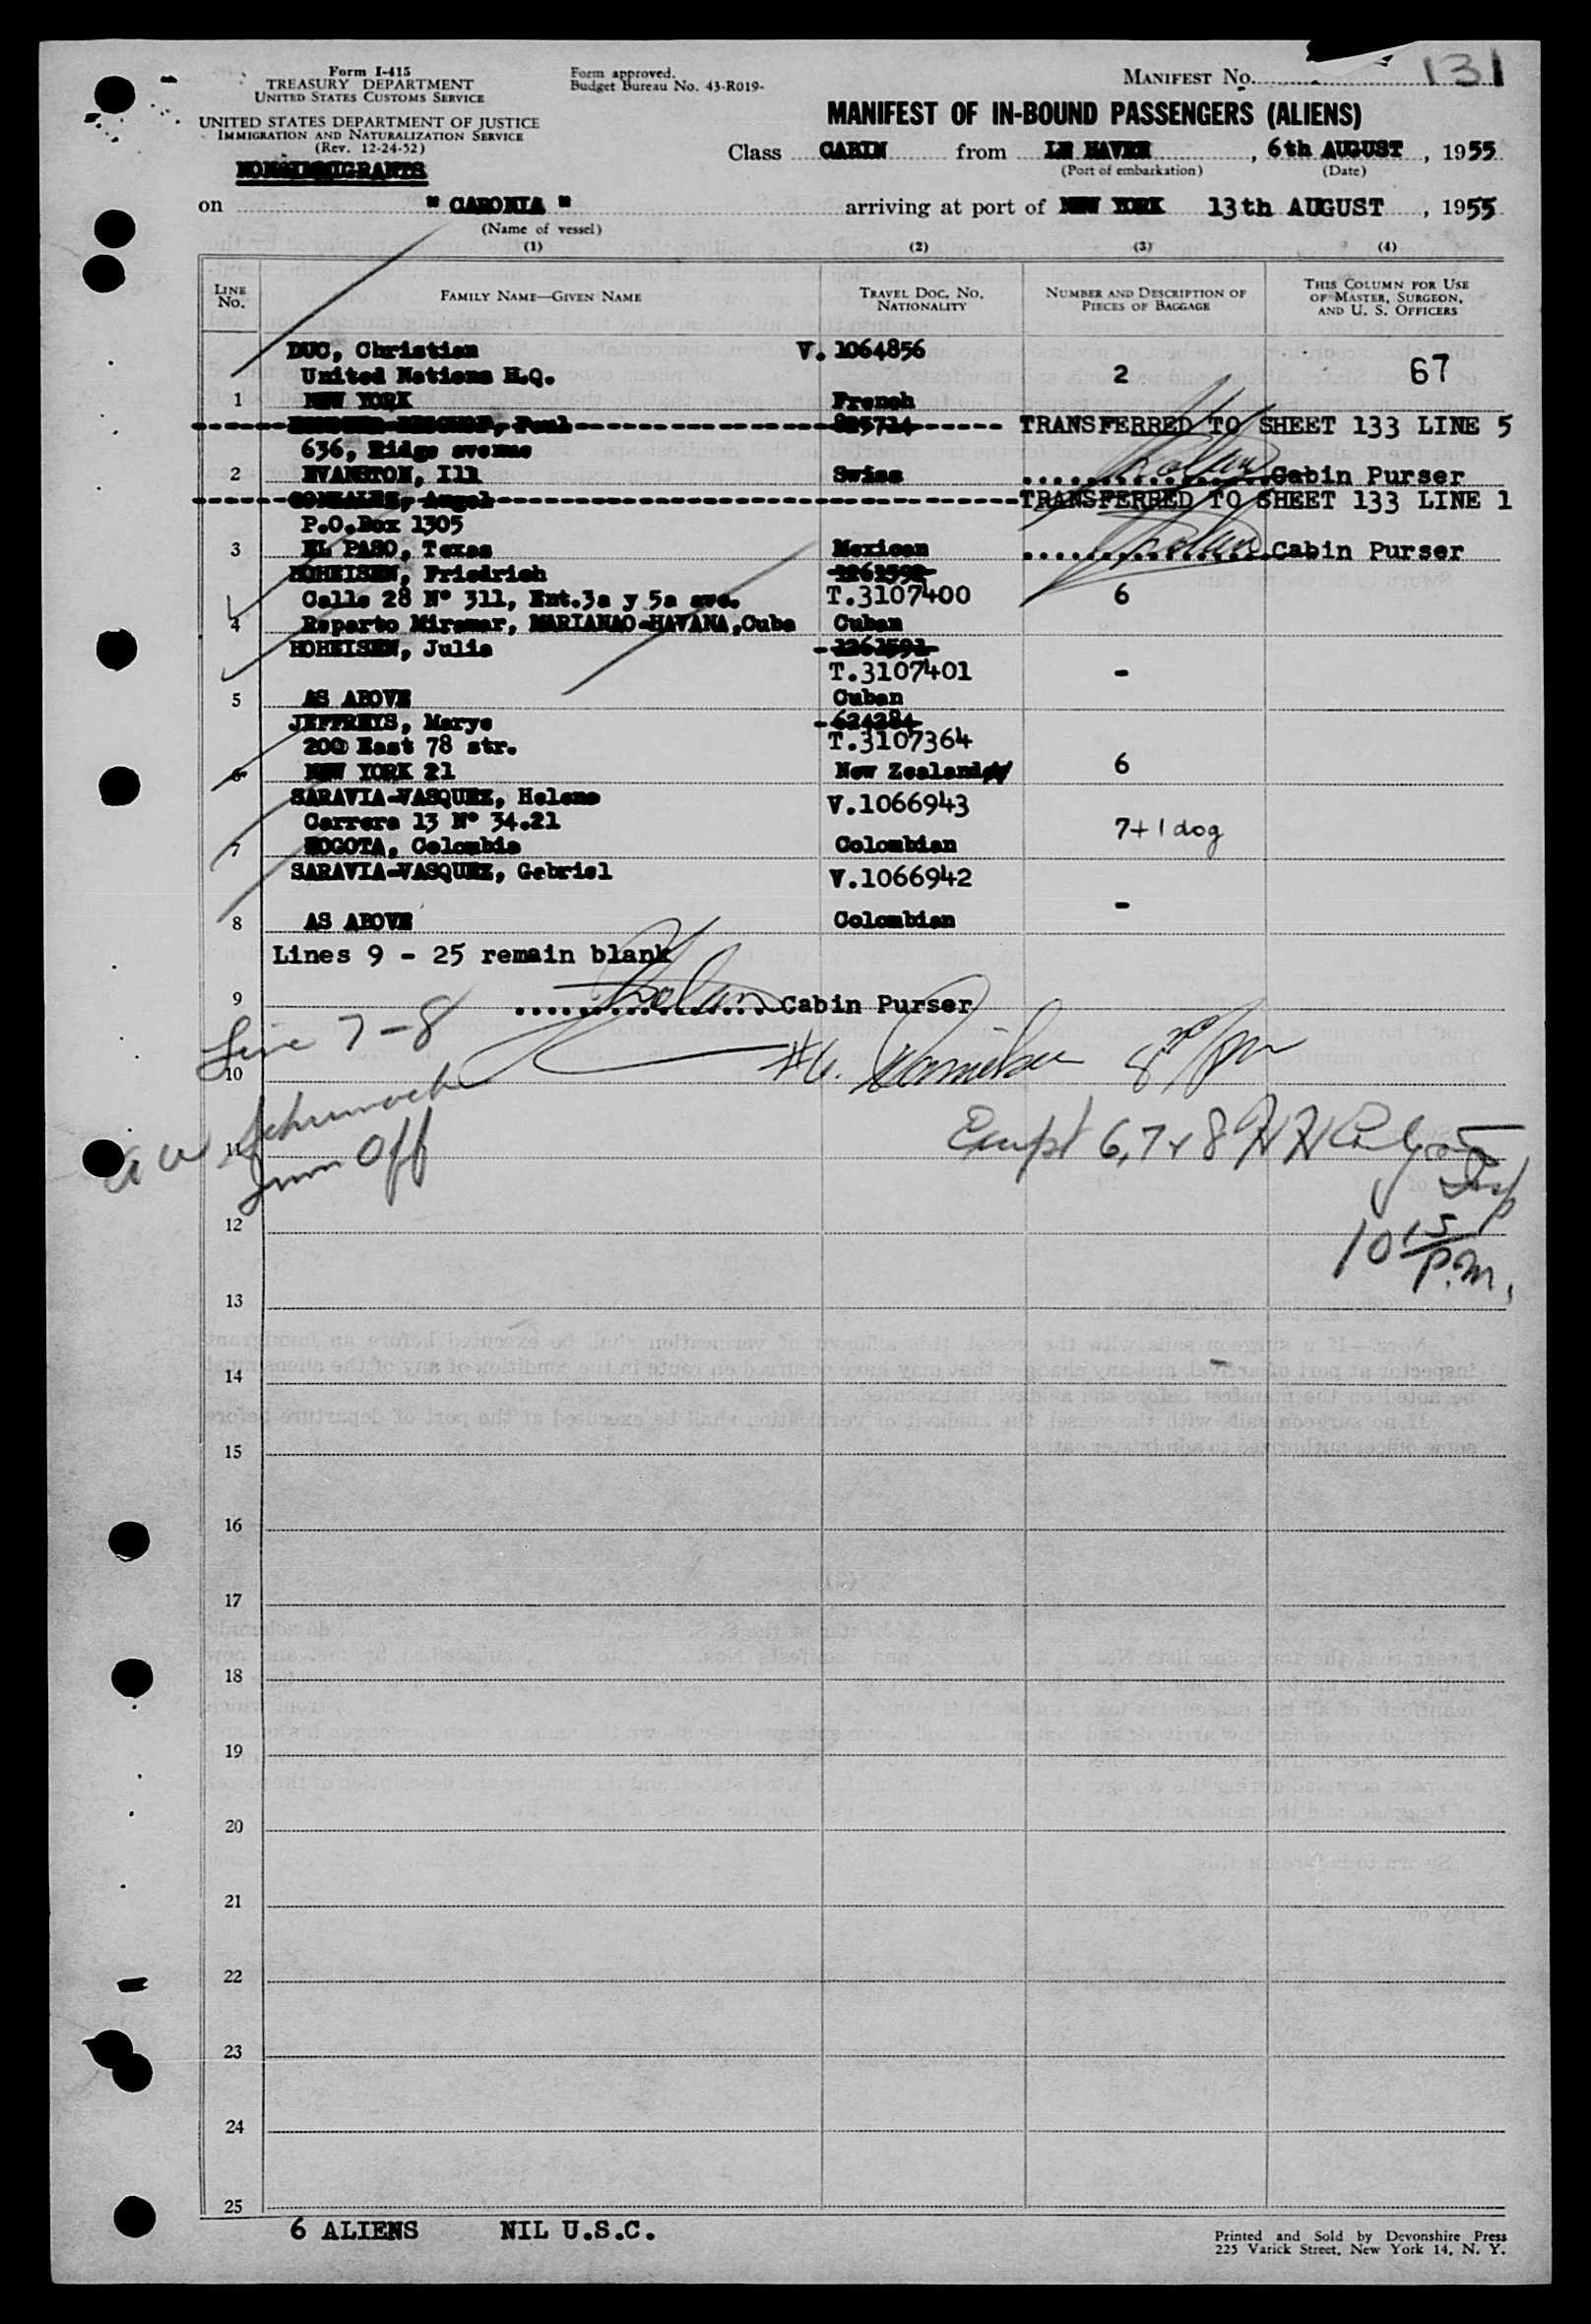 Form I-415
TREASURY DEPARTMENT
UNITED STATES CUSTOMS SERVICE
UNITED STATES DEPARTMENT OF JUSTICE
IMMIGRATION AND NATURALIZATION SERVICE
(Rev. 12-24-52)
NONIMMIGRANTS
Form approved.
Budget Bureau No. 43-R019-
MANIFEST NO. 131
MANIFEST OF IN-BOUND PASSENGERS (ALIENS)
Class CABIN from LE HAVRE, 6th AUGUST, 1955
(Port of embarkation) (Date)
on " CARONIA " arriving at port of NEW YORK 13th AUGUST, 1955
(Name of vessel)
(1) (2) (3) (4)
LINE NO. FAMILY NAME—GIVEN NAME TRAVEL DOC. NO. NATIONALITY NUMBER AND DESCRIPTION OF PIECES OF BAGGAGE THIS COLUMN FOR USE OF MASTER, SURGEON, AND U. S. OFFICERS
DUC, Christian V. 1064856
United Nations H.Q. 2 67
1 NEW YORK French
Paul 825714 TRANSFERRED TO SHEET 133 LINE 5
636, Ridge avenue
2 EVANSTON, Ill Swiss Cabin Purser
GONZALES, Angel TRANSFERRED TO SHEET 133 LINE 1
P.O.Box 1305
3 EL PASO, Texas Mexican Cabin Purser
HOHEISEN, Friedrich 1261592
Calle 28 Nº 311, Ent.3a y 5a ave. T.3107400 6
4 Reparto Miramar, MARIANAO-HAVANA,Cuba Cuban
HOHEISEN, Julia 1261591
T.3107401 -
5 AS ABOVE Cuban
JEFFREYS, Marye 624284
200 East 78 str. T.3107364
6 NEW YORK 21 New Zealand 6
SARAVIA-VASQUEZ, Helena V.1066943
Carrera 13 Nº 34.21 7+1 dog
7 BOGOTA, Colombia Colombian
SARAVIA-VASQUEZ, Gabriel V.1066942
-
8 AS ABOVE Colombian
Lines 9 - 25 remain blank
9 Cabin Purser
Line 7-8
10 #6.
11 Imm Off
Except 6,7+8
12
10 15 P.M.
13
14
15
16
17
18
19
20
21
22
23
24
25
6 ALIENS NIL U.S.C.
Printed and Sold by Devonshire Press
225 Varick Street, New York 14, N. Y.